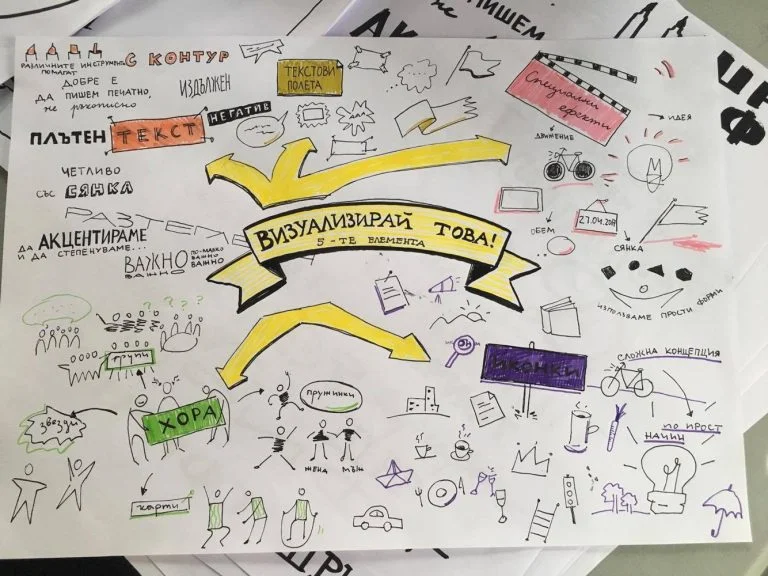 РАЗЛИЧНИТЕ ИНСТРУМЕНТИ
ПОМАГАТ
С КОНТУР
ДОБРЕ Е
ДА ПИШЕМ ПЕЧАТНО,
не ръкописно
ИЗДЪЛЖЕН
ПЛЪТЕН
ТЕКСТ
НЕГАТИВ
ЧЕТЛИВО
СЪС СЯНКА
РАЗТЕГЛЕ
ДА АКЦЕНТИРАМЕ
И ДА СТЕПЕНУВАМЕ...
ВАЖНО
ВАЖНО
ПО-МАЛКО
ВАЖНО
ВАЖНО
ТЕКСТОВИ
ПОЛЕТА
ДАА
Специални
ефекти
ИДЕЯ
ДВИЖЕНИЕ
ОБЕМ
СЯНКА
ИЗПОЛЗВАМЕ ПРОСТИ ФОРМИ
ВИЗУАЛИЗИРАЙ ТОВА!
5-ТЕ ЕЛЕМЕНТА
ИКОНКИ
СЛОЖНА КОНЦЕПЦИЯ
ПО ПРОСТ
НАЧИН
групи
? ? ? ?
ХОРА
звезди
карти
пружинки
ЖЕНА
МЪЖ
ПИШЕМ
не